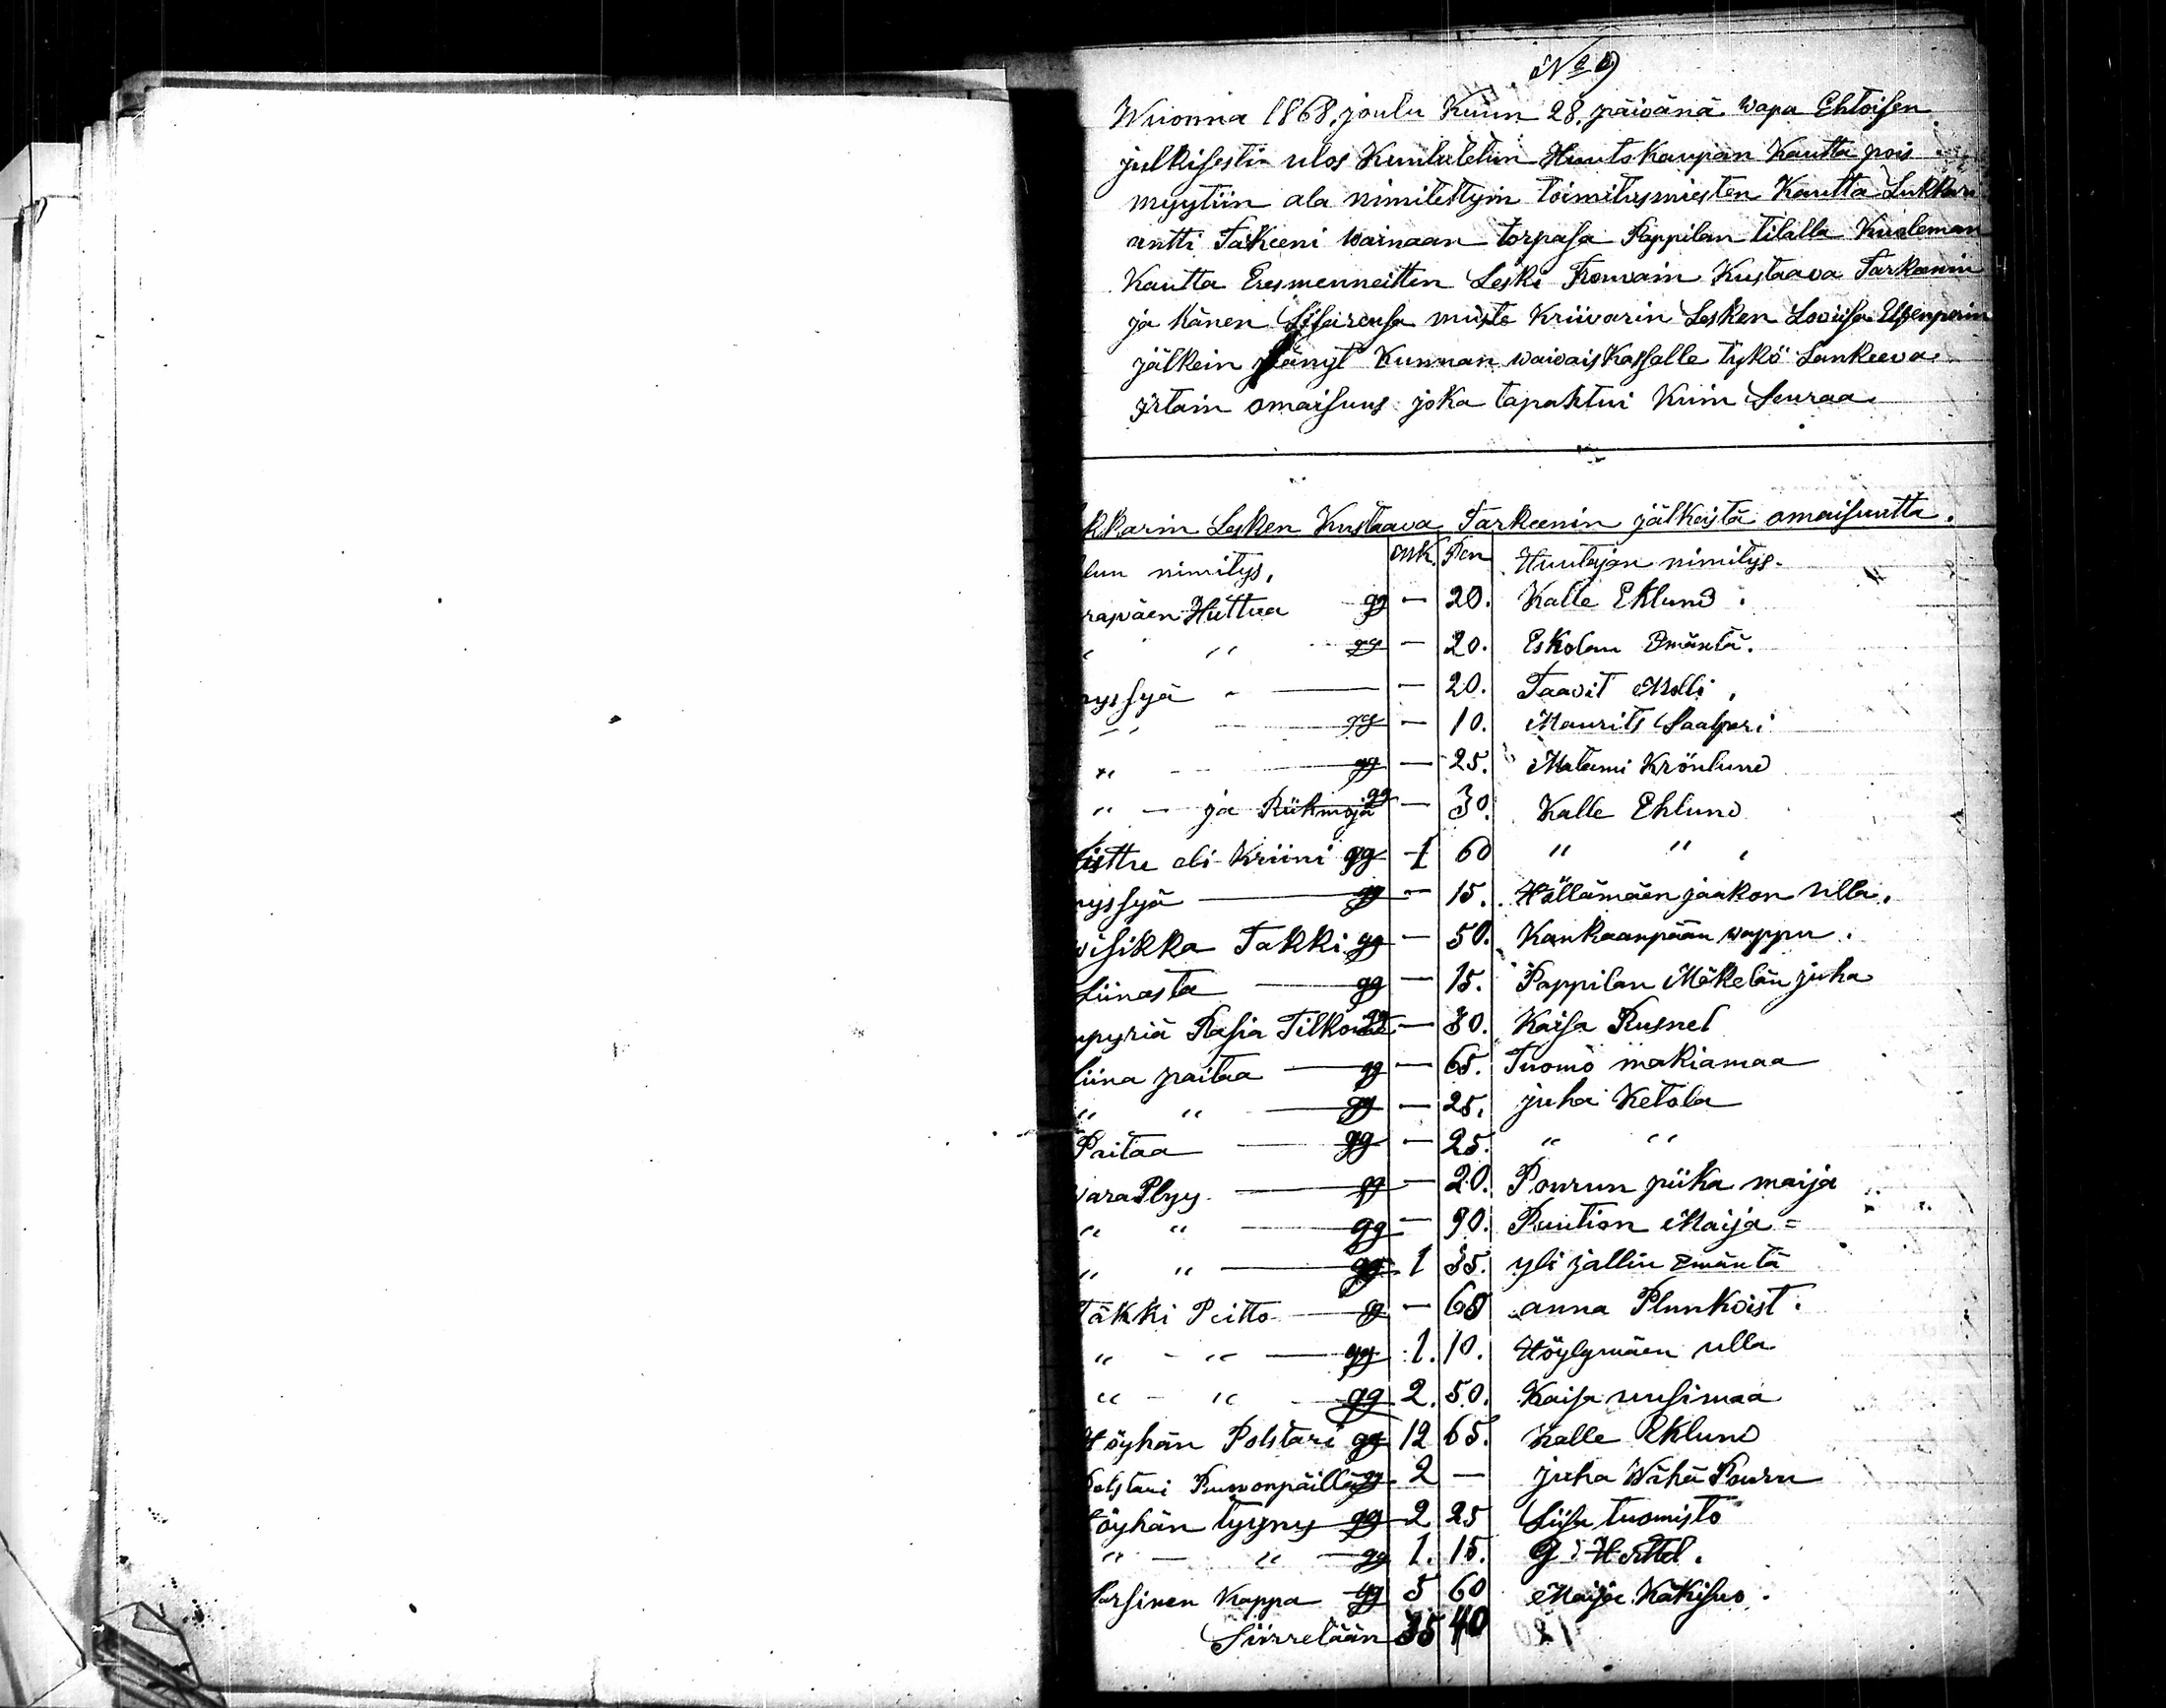 No 9
Wuonna 1868, joulu Kuun 28. päivänä wapa Ehtoisen
julkisestin ulos Kuulutetun Huutokaupan Kautta pois
myytiin ala nimitettyin toimitusmiesten Kautta Lukkari
antti Tarkeeni wainaan torpasa Pappilan tilalla Kuoleman
Kautta Eresmenneitten Leski Frouvain Kustaava Tarkeenin
ja hänen Sisarensa muste Kriivarin Lesken Lovisa
jälkein jäänyt Kunnan waivais Kassalle tykö Lankeeva
irtain omaisuus joka tapahtui Kuin Seuraa
kkarin Lesken Kustaava Tarkeenin jälkeistä omaisuutta.
lun nimitys, Mk. Pen Huutajan nimitys.
Huttua gg — 20. Kalle Eklund.
" " gg — 20. Eskolan Emäntä.
yssyä — — 20. Taavit Molli,
" gg — 10. Maurits Saalperi
" gg — 25. Matami Krönlund
" — ja Riihmoja gg — 30. Kalle Eklund
eli Kriini gg 1 60 " "
yssyä — gg — 15. Höllämäen jaakon ulla.
Takki gg — 50. Kankaanpään wappu.
Liinasta — gg — 15. Pappilan Mäkelän juha
Rasia gg — 30. Kaisa Rusnel
liina paitaa — gg — 65. Tuomo makiamaa
" " — gg — 25. juha Ketola
Paitaa — gg — 25. " "
wara Plyy — gg — 20. Pourun piika maija
" " — gg — 90. Ruution Maija =
" " — gg 1 35. yli jallin Emäntä
Täkki Peitto — g — 65 anna Plunkvist.
" - " — gg 1. 10. Höylymäen ulla
" - " — gg 2. 50. Kaisa uusimaa
Höyhän Polstari gg 12 65. Kalle Eklund
Polstari gg 2 — juha Wähä Pouru
öyhän tyyny gg 2 25 Liisa tuomisto
" — " — gg 1. 15. G: Hettel.
Kappa gg 5 60 Maija Kakisuo.
Siirretään 35 40